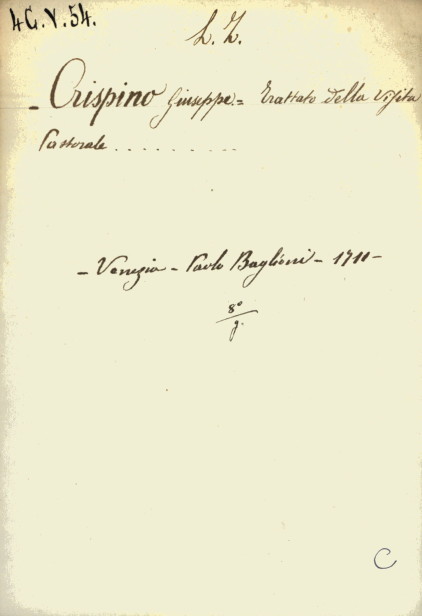 4G.V.54.
L. Z.
- Crispino Giuseppe = Trattato della Visita
Pastorale . . . . . . . . .
- Venezia - Paolo Baglioni - 1711 -
8º
g.
C